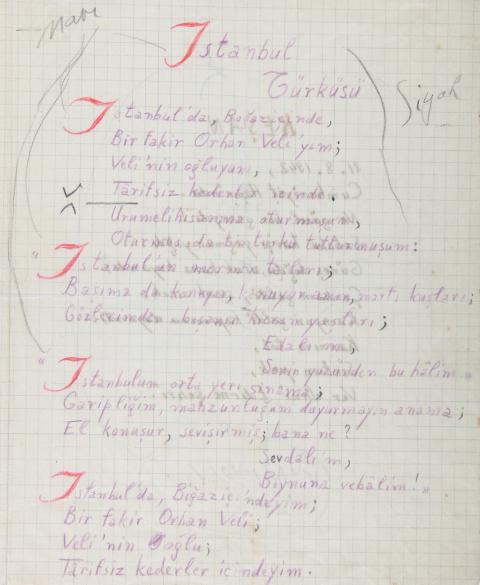 Mavi
İstanbul
Türküsü
Siyah
İstanbul'da, Boğaziçinde,
Bir fakir Orhan Veli'yim;
Veli'nin oğluyum,
Târifsiz kederler içinde.
Urumelihisarına oturmuşum,
Oturmuş da bir türkü tutturmuşum:
"İstanbul'un mermer taşları;
Başıma da konuyor, konuyor aman, martı kuşları;
Gözlerimden boşanır hicran yaşları;
Edalı'm,
Senin yüzünden bu hâlim."
"İstanbulun orta yeri sinema;
Garipliğim, mahzunluğum duyurmayın anama;
El konuşur, sevişirmiş; bana ne?
Sevdalı'm,
Boynuna vebâlim!"
İstanbul'da, Boğaziçi'ndeyim;
Bir fakir Orhan Veli;
Veli'nin oğlu;
Târifsiz kederler içindeyim.